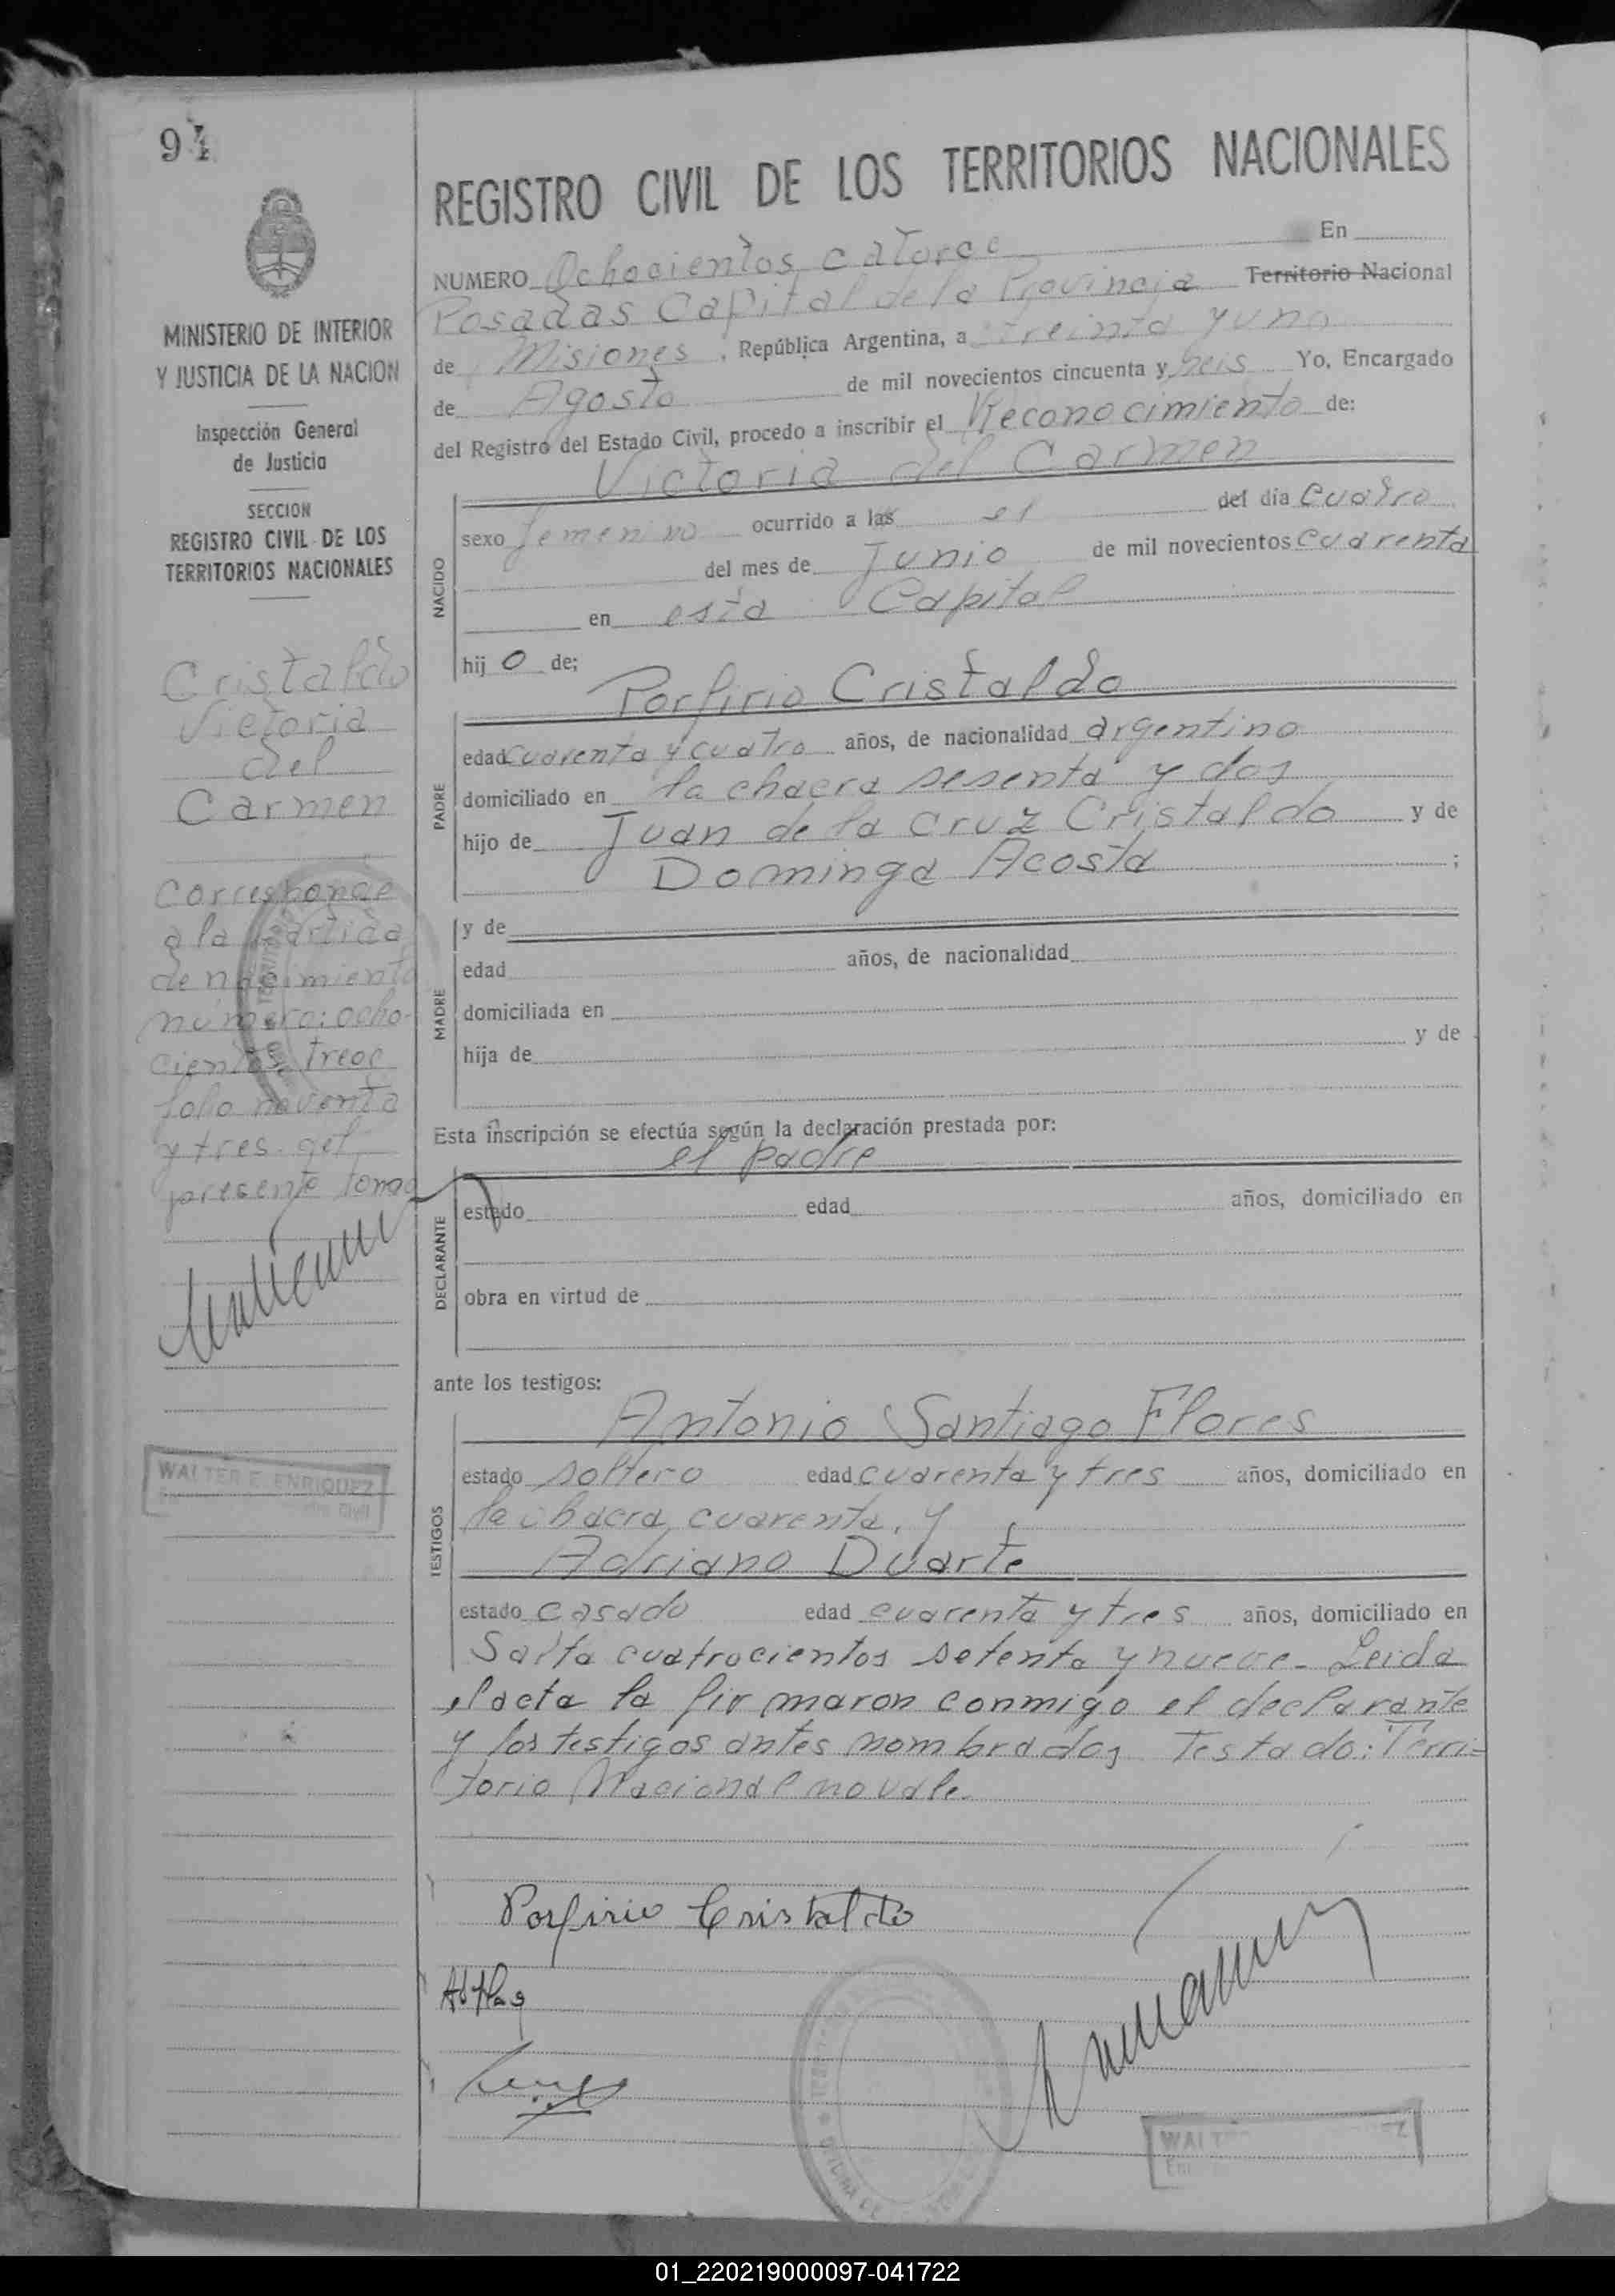 94
MINISTERIO DE INTERIOR
Y JUSTICIA DE LA NACION
Inspección General
de Justicia
SECCION
REGISTRO CIVIL DE LOS
TERRITORIOS NACIONALES
Cristaldo
Victoria
del
Carmen
Corresponde
a la partida
de nacimiento
número: ocho-
cientos trece
folio noventa
y tres del
presente tomo
WALTER E. ENRIQUEZ
Civil
REGISTRO CIVIL DE LOS TERRITORIOS NACIONALES
NUMERO Ochocientos catorce En
Posadas Capital de la Provincia Territorio Nacional
de Misiones, República Argentina, a treinta y uno
de Agosto de mil novecientos cincuenta y seis Yo, Encargado
del Registro del Estado Civil, procedo a inscribir el Reconocimiento de:
Victoria del Carmen
NACIDO
sexo femenino ocurrido a las el del día cuatro
del mes de Junio de mil novecientos cuarenta
en esta Capital
hij o de;
Porfirio Cristaldo
PADRE
edad cuarenta y cuatro años, de nacionalidad argentino
domiciliado en la chacra sesenta y dos
hijo de Juan de la Cruz Cristaldo y de
Dominga Acosta ;
MADRE
y de
edad años, de nacionalidad
domiciliada en
hija de y de
Esta inscripción se efectúa según la declaración prestada por:
el padre
DECLARANTE
estado edad años, domiciliado en
obra en virtud de
ante los testigos:
Antonio Santiago Flores
TESTIGOS
estado soltero edad cuarenta y tres años, domiciliado en
la chacra cuarenta, y
Adriano Duarte
estado casado edad cuarenta y tres años, domiciliado en
Salta cuatrocientos setenta y nueve- Leida
el acta la firmaron conmigo el declarante
y los testigos antes nombrados Testado: Terri=
torio Nacional no vale.
Porfirio Cristaldo
WALT EZ
01_220219000097-041722